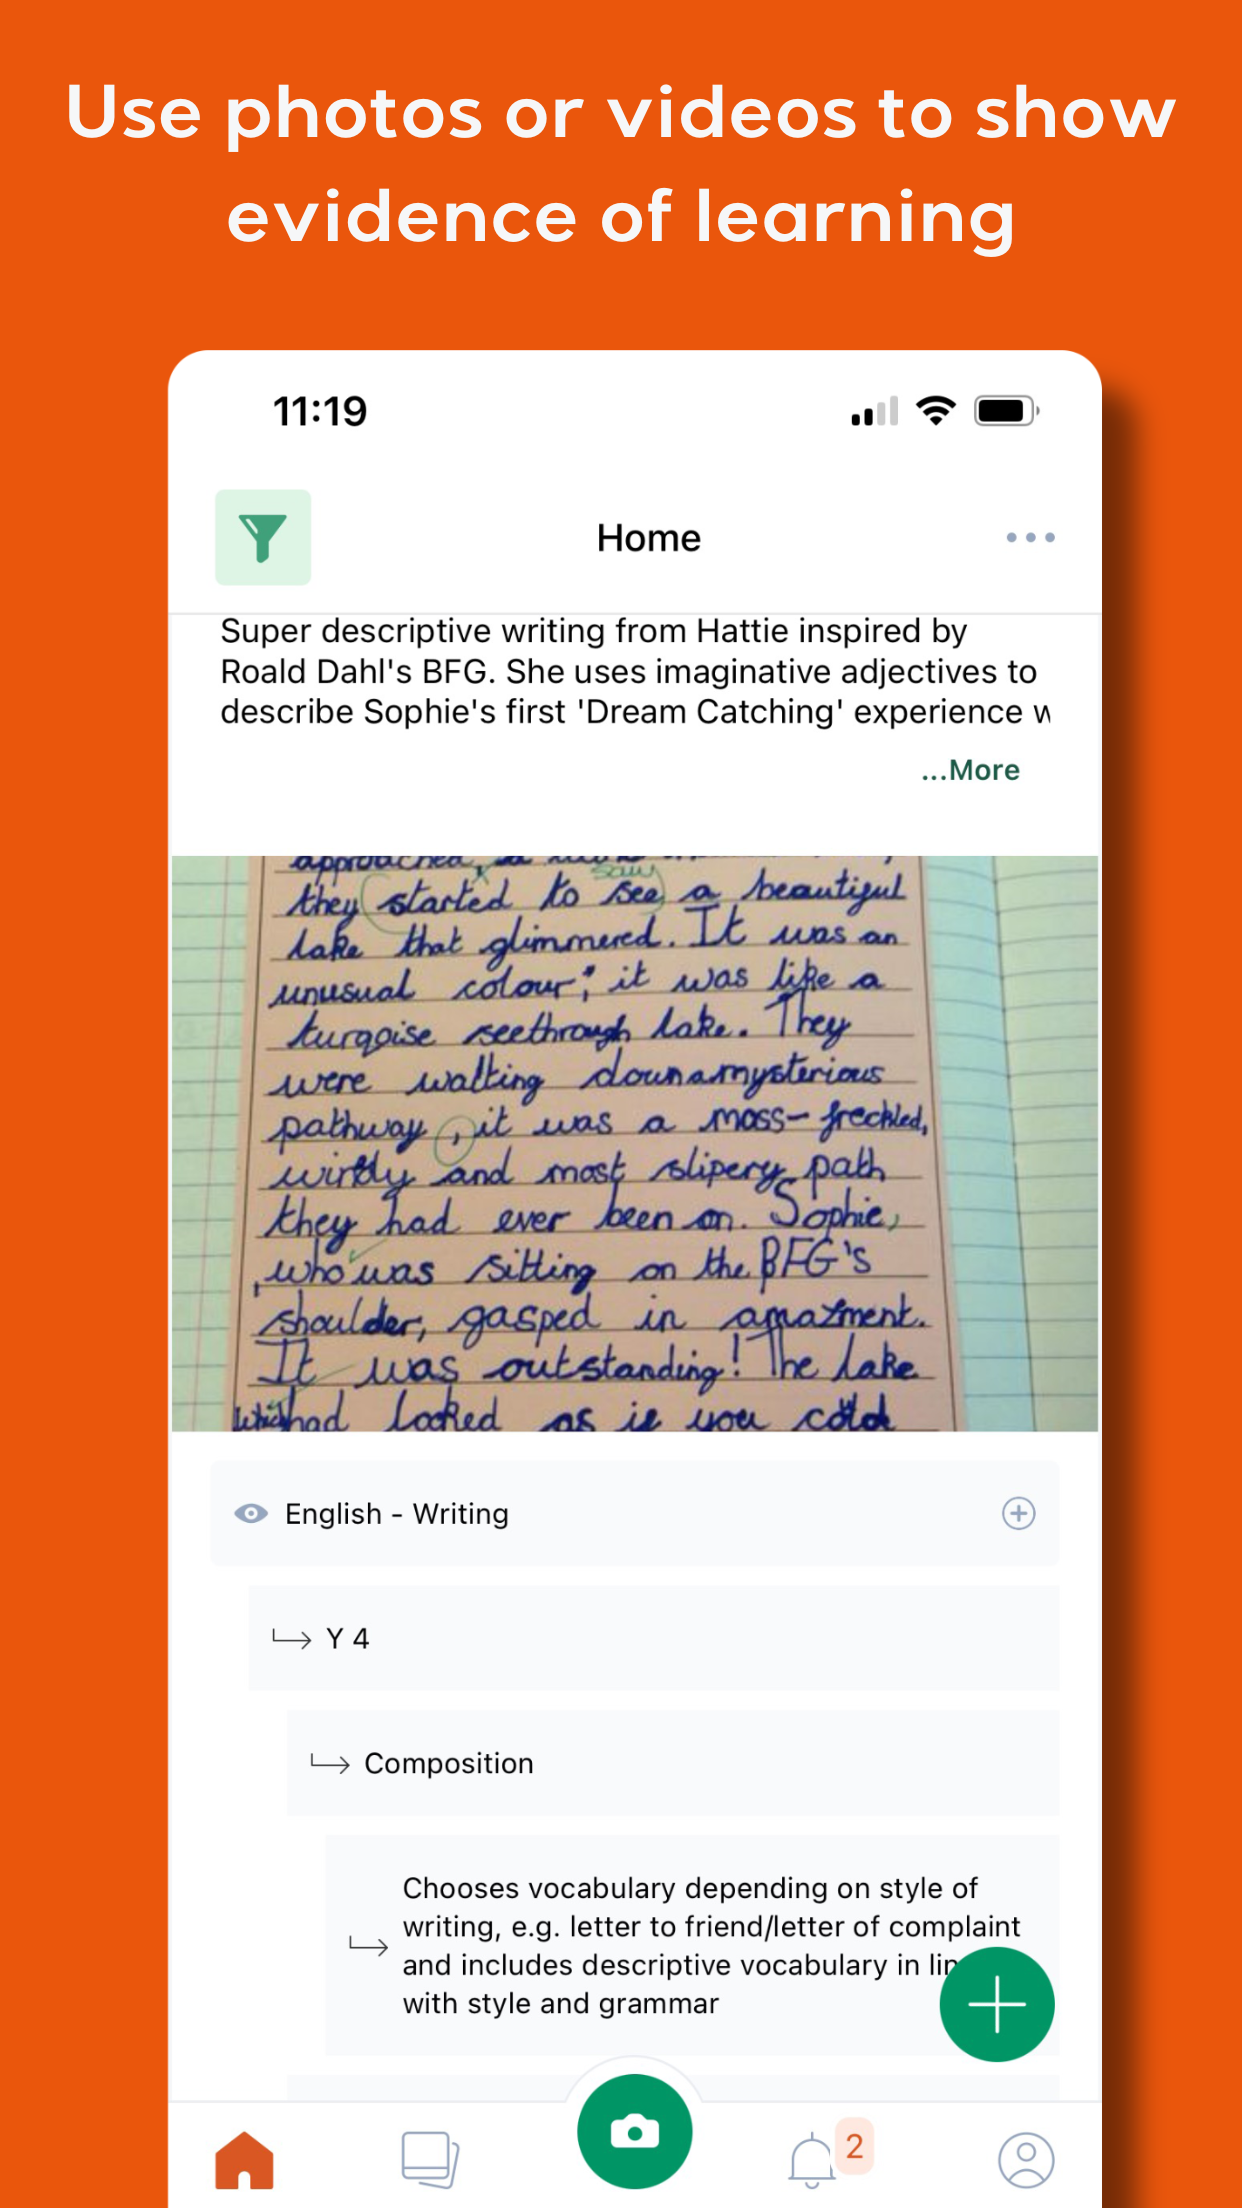 Use photos or videos to show
evidence of learning
11:19
Home
Super descriptive writing from Hattie inspired by
Roald Dahl's BFG. She uses imaginative adjectives to
describe Sophie's first 'Dream Catching' experience w
...More
approached, a
saw
they started to see a beautiful
lake that glimmered. It was an
unusual colour; it was like a
turqoise seethrough lake. They
were walking down a mysterious
pathway, it was a moss-freckled,
and most slipery path
they had ever been on. Sophie,
who was sitting on the BFG's
shoulder, gasped in amazment.
It was outstanding! The lake
which had looked as if you
English - Writing
Y 4
Composition
Chooses vocabulary depending on style of
writing, e.g. letter to friend/letter of complaint
and includes descriptive vocabulary in lin
with style and grammar
2